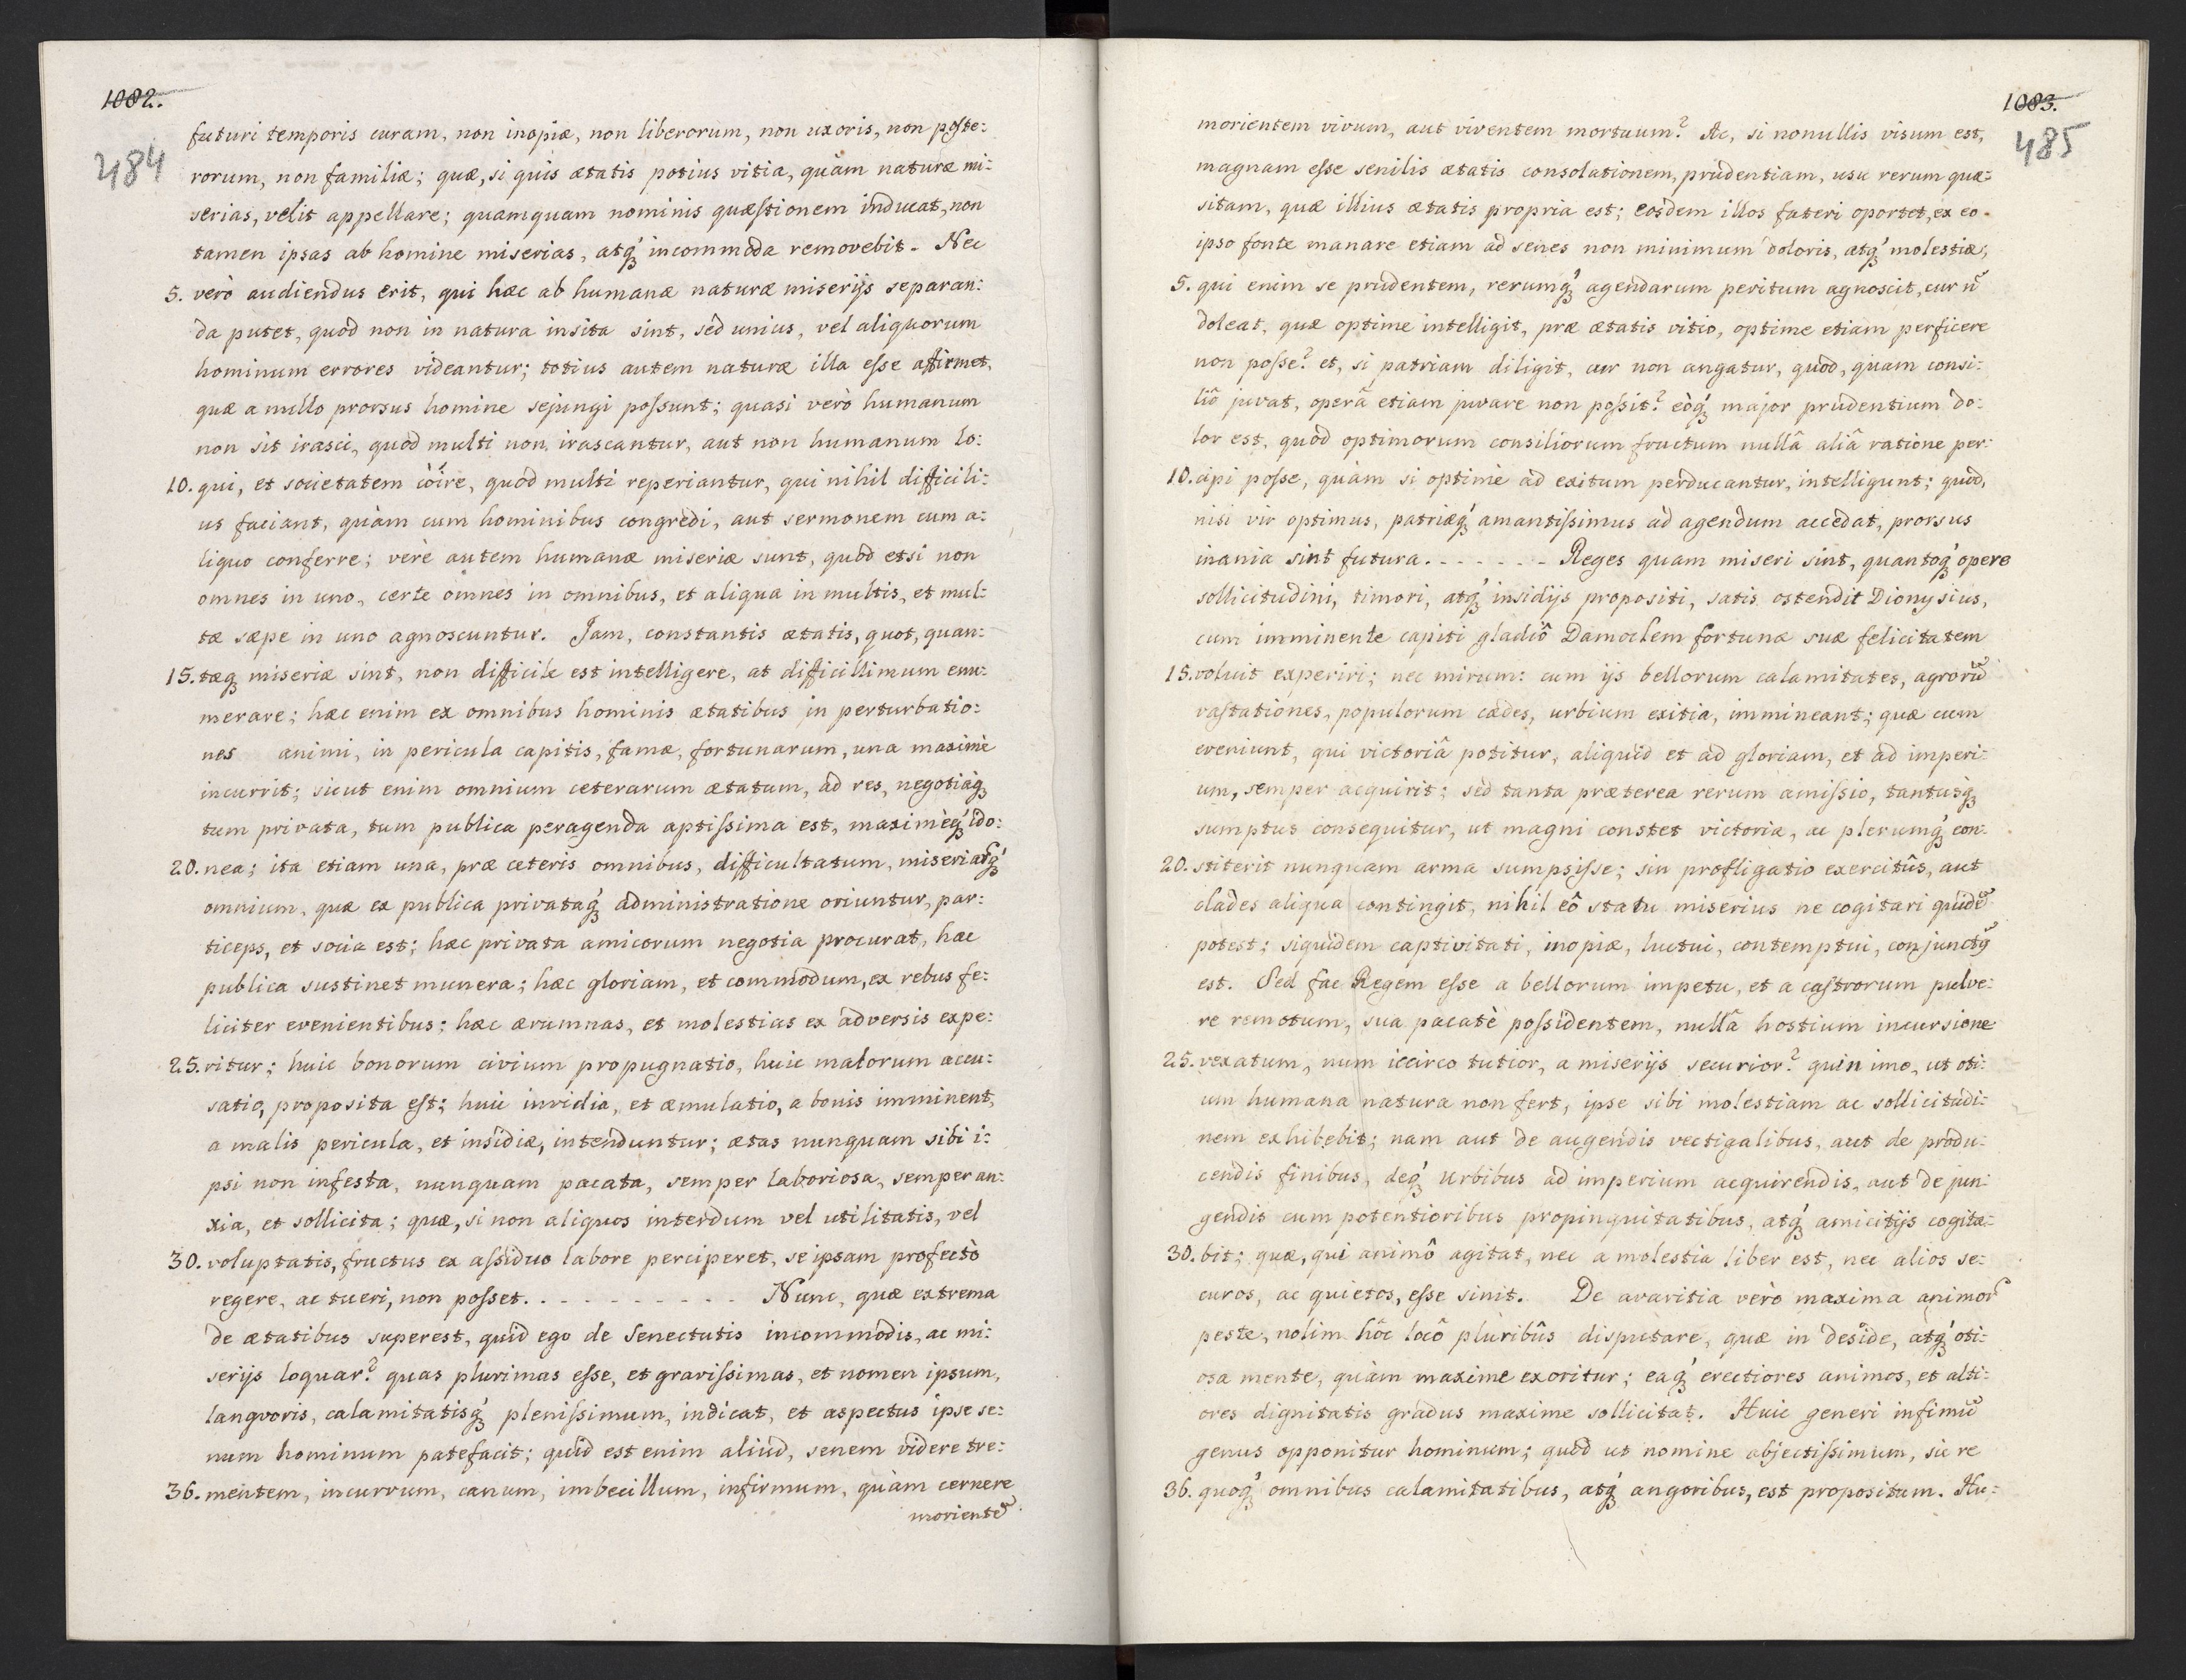 1082.
484
futuri temporis curam, non inopiæ, non liberorum, non uxoris, non poste:
rorum, non familiæ; quæ, si quis ætatis potius vitia, quàm naturæ mi:
serias, velit appellare; quamquam nominis quæstionem inducat, non
tamen ipsas ab homine miserias, atq́ʒ incommoda removebit. Nec
5. verò audiendus erit, qui hæc ab humanæ naturæ miserijs separan:
da putet, quod non in natura insita sint, sed unius, vel aliquorum
hominum errores videantur; totius autem naturæ illa esse affirmet,
quæ a nullo prorsus homine sejungi possunt; quasi verò humanum
non sit irasci, quod multi non irascantur, aut non humanum lo:
10. qui, et societatem coire, quod multi reperiantur, qui nihil difficili:
us faciant, quàm cum hominibus congredi, aut sermonem cum a:
liquo conferre; verè autem humanæ miseriæ sunt, quod etsi non
omnes in uno, certe omnes in omnibus, et aliqua in multis, et mul:
tæ sæpe in uno agnoscuntur. Jam, constantis ætatis, quot, quan:
15. tæqʒ miseriæ sint, non difficile est intelligere, at difficillimum enu:
merare; hæc enim ex omnibus hominis ætatibus in perturbatio:
nes animi, in pericula capitis, famæ, fortunarum, una maximè
incurrit; sicut enim omnium ceterarum ætatum, ad res, negotiàqʒ
tum privata, tum publica peragenda aptissima est, maximèq́ʒ ido:
20. nea; ita etiam una, præ ceteris omnibus, difficultatum, miseriarũq́ʒ
omnium, quæ ex publica privataq́ʒ administratione oriuntur, par:
ticeps, et socia est; hæc privata amicorum negotia procurat, hæc
publica sustinet munera; hæc gloriam, et commodum, ex rebus fe:
liciter evenientibus; hæc ærumnas, et molestias ex adversis expe:
25. ritur; huic bonorum civium propugnatio, huic malorum accu:
satio, proposita est; huic invidia, et æmulatio, a bonis imminent,
a malis pericula, et insidiæ, intenduntur; ætas nunquam sibi i:
psi non infesta, nunquam pacata, semper laboriosa, semper an:
xia, et sollicita; quæ, si non aliquos interdum vel utilitatis, vel
30. voluptatis, fructus ex assiduo labore perciperet, se ipsam profectò
regere, ac tueri, non posset. . - - - - - - - - - - Nunc, quæ extrema
de ætatibus superest, quid ego de Senectutis incommodis, ac mi:
serijs loquar? quas plurimas esse, et gravissimas, et nomen ipsum,
langvoris, calamitatisq́ʒ plenissimum, indicat, et aspectus ipse se:
num hominum patefacit; quid est enim aliud, senem videre tre:
36. mentem, incurvum, canum, imbecillum, infirmum, quàm cernere
morientẽ
1083.
485
morientem vivum, aut viventem mortuum? Ac, si nonullis visum est,
magnam esse senilis ætatis consolationem, prudentiam, usu rerum quæ:
sitam, quæ illius ætatis propria est; eosdem illos fateri oportet, ex eo
ipso fonte manare etiam ad senes non minimum doloris, atq́ʒ molestiæ;
5. qui enim se prudentem, rerumq́ʒ agendarum peritum agnoscit, cur ñ
doleat, quæ optime intelligit, præ ætatis vitio, optime etiam perficere
non posse? et, si patriam diligit, cur non angatur, quod, quam consi:
liô juvat, operâ etiam juvare non possit? eòq́ʒ major prudentium do:
lor est, quod optimorum consiliorum fructum nullâ aliâ ratione per:
10. cipi posse, quàm si optimè ad exitum perducantur, intelligunt; quod,
nisi vir optimus, patriæq́ʒ amantissimus ad agendum accedat, prorsus
inania sint futura. - - - - - - Reges quam miseri sint, quantoq́ʒ opere
sollicitudini, timori, atq́ʒ insidijs propositi, satis ostendit Dionysius,
cum imminente capiti gladiô Damoclem fortunæ suæ felicitatem
15. voluit experiri; nec mirum: cum ijs bellorum calamitates, agrorũ
vastationes, populorum cædes, urbium exitia, immineant; quæ cum
eveniunt, qui victoriâ potitur, aliquid et ad gloriam, et ad imperi:
um, semper acquirit; sed tanta præterea rerum amissio, tantusq́ʒ
sumptus consequitur, ut magni constet victoria, ac plerumq́ʒ con:
20. stiterit nunquam arma sumpsisse; sin profligatio exercitûs, aut
clades aliqua contingit, nihil eô statu miserius ne cogitari quidẽ
potest; siquidem captivitati, inopiæ, luctui, contemptui, conjunctũ
est. Sed fac Regem esse a bellorum impetu, et a castrorum pulve:
re remotum, sua pacatè possidentem, nullâ hostium incursione
25. vexatum, num iccirco tutior, a miserijs securior? quin imo, ut oti:
um humana natura non fert, ipse sibi molestiam ac sollicitudi:
nem exhibebit; nam aut de augendis vectigalibus, aut de produ:
cendis finibus, deq́ʒ Urbibus ad imperium acquirendis, aut de jun:
gendis cum potentioribus propinquitatibus, atq́ʒ amicitijs cogita:
30. bit; quæ, qui animô agitat, nec a molestia liber est, nec alios se:
curos, ac quietos, esse sinit. De avaritia verò maxima animorũ
peste, nolim hôc locô pluribûs disputare, quæ in deside, atq́ʒ oti:
osa mente, quàm maxime exoritur; eaq́ʒ erectiores animos, et alti:
ores dignitatis gradus maxime sollicitat. Huic generi infimũ
genus opponitur hominum; quod ut nomine abjectissimum, sic re
36. quoq́ʒ omnibus calamitatibus, atq́ʒ angoribus, est propositum. Hu: